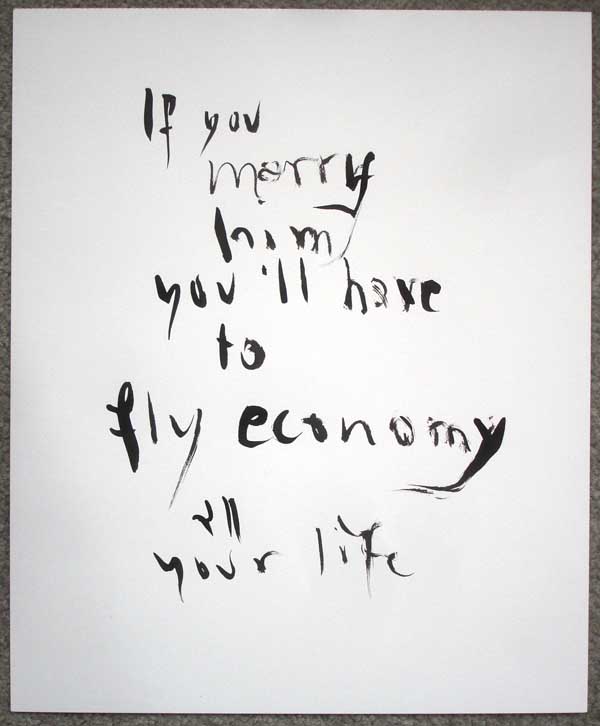 If you
marry
him
you'll have
to
fly economy
all
your life